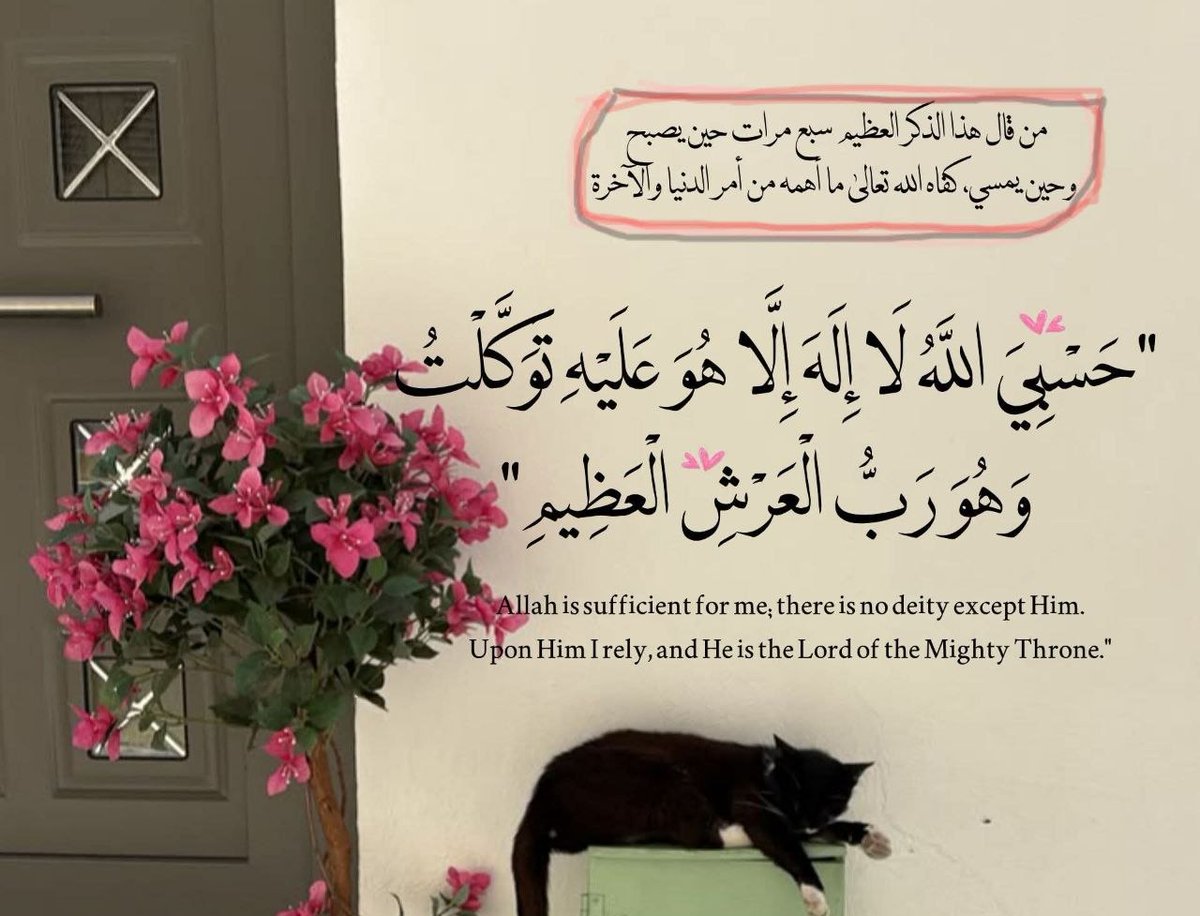 من قال هذا الذكر العظيم سبع مرات حين يصبح
وحين يمسي، كفاه الله تعالىٰ ما أهمه من أمر الدنيا والآخرة
"حَسْبِيَ اللَّهُ لَا إِلَهَ إِلَّا هُوَ عَلَيْهِ تَوَكَّلْتُ
وَهُوَ رَبُّ الْعَرْشِ الْعَظِيمِ"
Allah is sufficient for me; there is no deity except Him.
Upon Him I rely, and He is the Lord of the Mighty Throne."